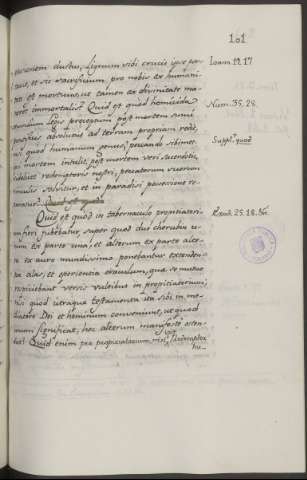 101
passionem ductus, Lignum vidi crucis ipse por-
tavit, et sic sacrificium pro nobis ex humani-
tate est mortuus, ut tamen ex divinitate ma-
neret immortalis? Quid est quod homicida
post mortem summi
pontificis absolutus ad terram propriam redit,
quod humanum genus, peccando sibimet-
mortem intulit, post mortem veri sacerdotis,
videlicet redemptoris nostri, peccatorum suorum
vinculis solvitur, et in paradisi possessione re-
Quid est quod in tabernaculo propitiatori-
um fieri jubebatur, super quod duo cherubin u-
num ex parte una, et alterum ex parte alte-
ra ex auro mundissimo ponebantur extenden-
alas, et operientia oraculum, quae se mutuo
respiciebant versis vultibus in propitiatorium,
nisi quod utraque testamenta ita sibi in me-
diatore Dei et hominum conveniunt, ut quod
unum significat, hoc alterum manifeste osten-
dat? Quid enim per propitiatorium, nisi ipse Redemptor
hu-
Joann. 19. 17
Num. 35. 28.
Suppl. quod
Exod. 25. 18.